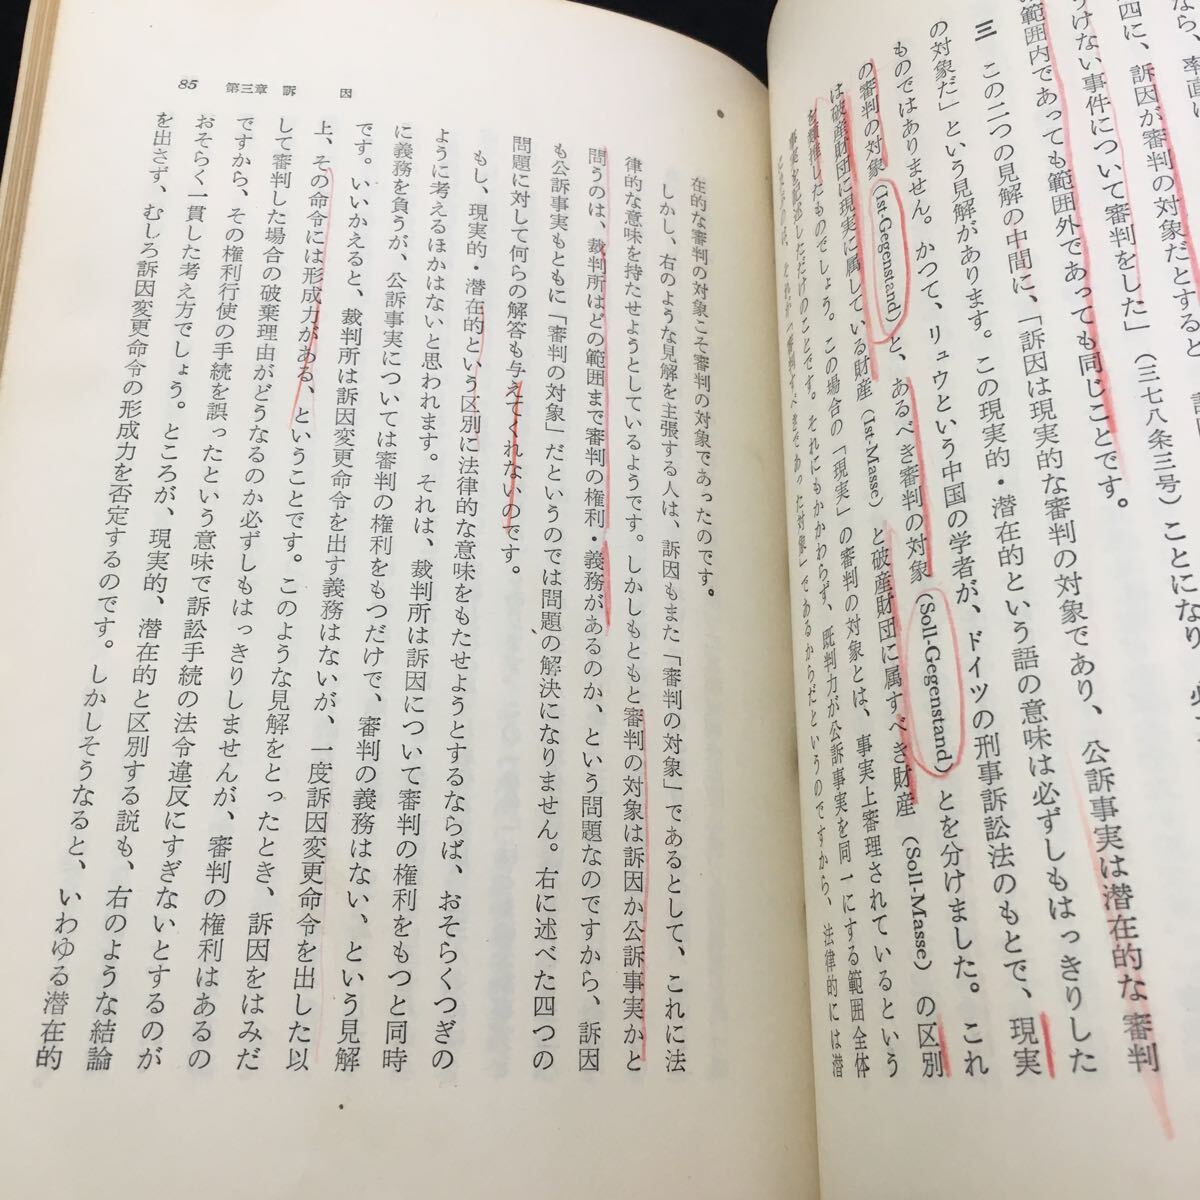 なら、率直に
四に、訴因が審判の対象だとすると
うけない事件について審判をした」（三七八条三号）ことになり、
範囲内であっても範囲外であっても同じことです。
三　この二つの見解の中間に、「訴因は現実的な審判の対象であり、公訴事実は潜在的な審判
の対象だ」という見解があります。この現実的・潜在的という語の意味は必ずしもはっきりした
ものではありません。かつて、リュウという中国の学者が、ドイツの刑事訴訟法のもとで、現実
の審判の対象（Ist-Gegenstand）と、あるべき審判の対象（Soll-Gegenstand）とを分けました。これ
は破産財団に現実に属している財産（Ist-Masse）と破産財団に属すべき財産（Soll-Masse）の区別
を類推したものでしょう。この場合の「現実」の審判の対象とは、事実上審理されているという
事実を記述しただけのことです。それにもかかわらず、既判力が公訴事実を同一にする範囲全体
それが「審判すべきであった対象」であるからだというのですから、法律的には潜
在的な審判の対象こそ審判の対象であったのです。
しかし、右のような見解を主張する人は、訴因もまた「審判の対象」であるとして、これに法
律的な意味を持たせようとしているようです。しかしもともと審判の対象は訴因か公訴事実かと
問うのは、裁判所はどの範囲まで審判の権利・義務があるのか、という問題なのですから、訴因
も公訴事実もともに「審判の対象」だというのでは問題の解決になりません。右に述べた四つの
問題に対して何らの解答も与えてくれないのです。
もし、現実的・潜在的という区別に法律的な意味をもたせようとするならば、おそらくつぎの
ように考えるほかはないと思われます。それは、裁判所は訴因について審判の権利をもつと同時
に義務を負うが、公訴事実については審判の権利をもつだけで、審判の義務はない、という見解
です。いいかえると、裁判所は訴因変更命令を出す義務はないが、一度訴因変更命令を出した以
上、その命令には形成力がある、ということです。このような見解をとったとき、訴因をはみだ
して審判した場合の破棄理由がどうなるのか必ずしもはっきりしませんが、審判の権利はあるの
ですから、その権利行使の手続を誤ったという意味で訴訟手続の法令違反にすぎないとするのが
おそらく一貫した考え方でしょう。ところが、現実的、潜在的と区別する説も、右のような結論
を出さず、むしろ訴因変更命令の形成力を否定するのです。しかしそうなると、いわゆる潜在的
85　第三章　訴　因